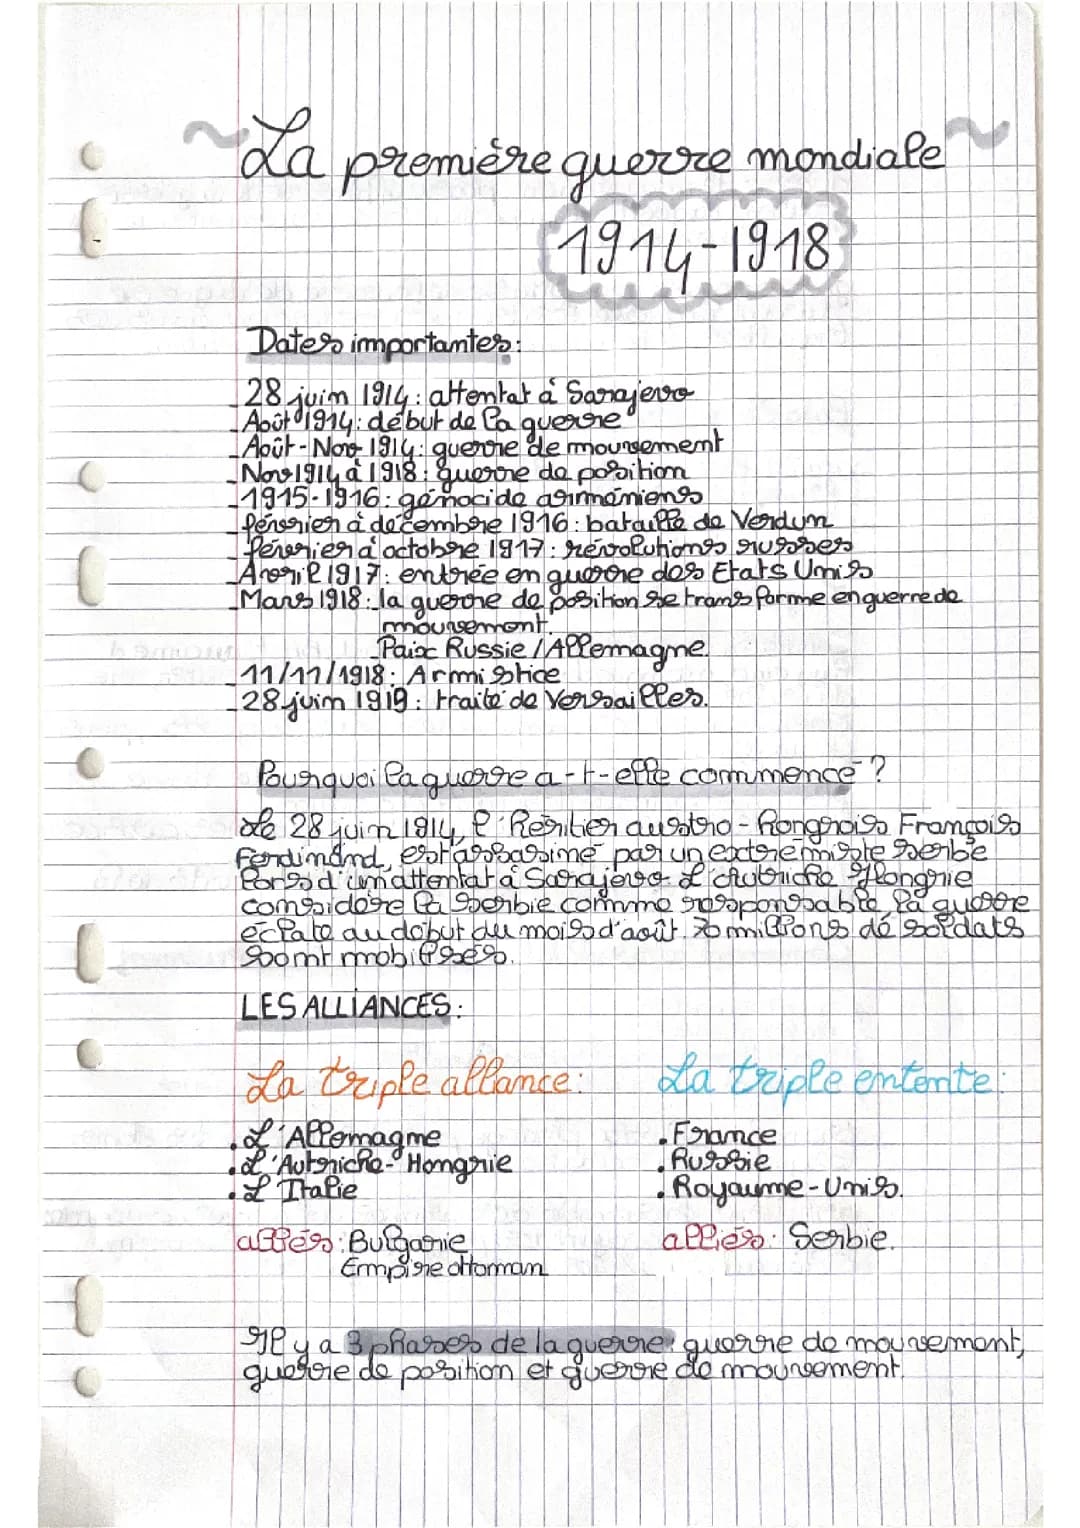 La première guerre mondiale
1914-1918
Dates importantes:
28 juin 1914: attentat à Sarajevo
Août 1914: début de la guerre
Août-Nov 1914: guerre de mouvement
Nov 1914 à 1918: guerre de position
1915-1916: génocide arméniens
février à décembre 1916: bataille de Verdun
février à octobre 1917: révolutions russes
Avril 1917: entrée en guerre des Etats Unis
Mars 1918: la guerre de position se transforme en guerre de
mouvement.
Paix Russie / Allemagne.
11/11/1918: Armistice
28 juin 1919: traité de Versailles.
Pourquoi la guerre a-t-elle commencé ?
Le 28 juin 1914, l'héritier austro-hongrois François
Ferdinand, est assassiné par un extrémiste serbe
lors d'un attentat à Sarajevo. L'Autriche Hongrie
considère la Serbie comme responsable, la guerre
éclate au début du mois d'août. 70 millions de soldats
sont mobilisés.
LES ALLIANCES:
La triple alliance: La triple entente:
. L'Allemagne . France
. L'Autriche-Hongrie . Russie
. L'Italie . Royaume-Unis.
alliés: Bulgarie alliés: Serbie.
Empire ottoman
Il y a 3 phases de la guerre: guerre de mouvement,
guerre de position et guerre de mouvement.